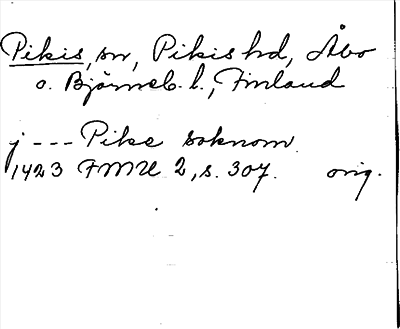 Pikis, sn, Pikis hd, Åbo
o. Björneb. l., Finland
j --- Pike soknom
1423 FMU 2, s. 307. orig.